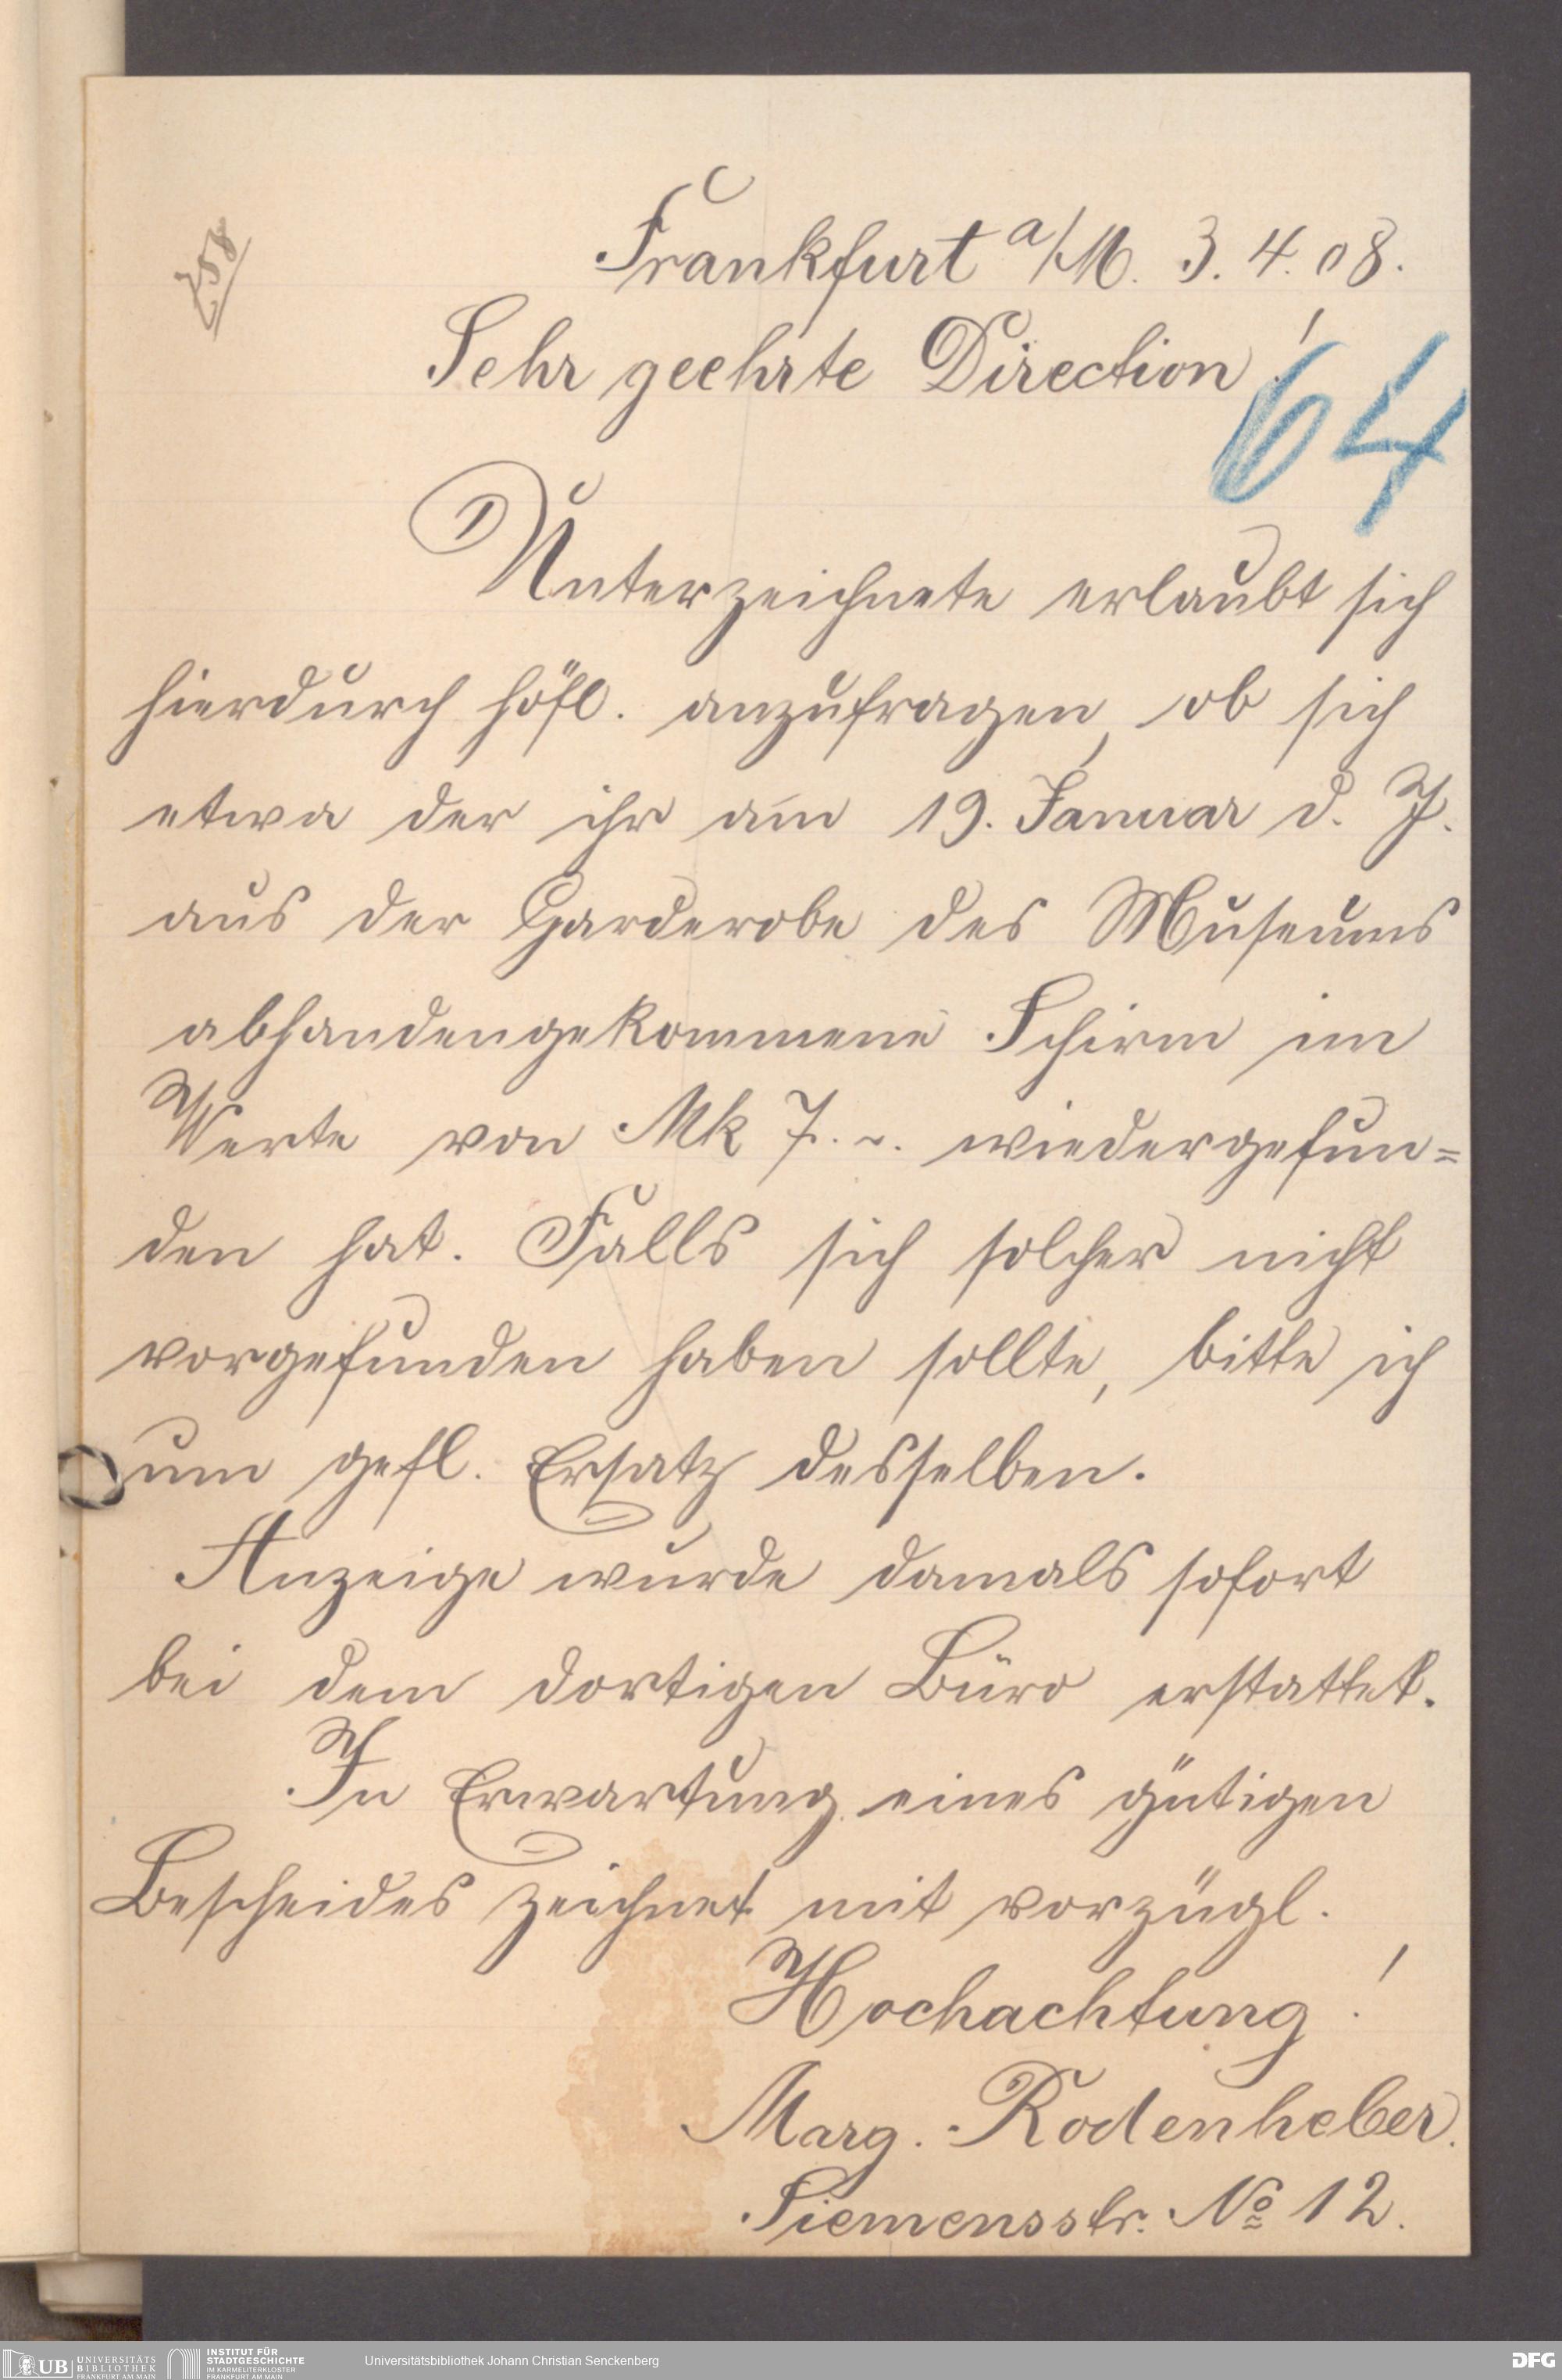 258
Frankfurt a/M. 3. 4. 08.
Sehr geehrte Direction!
64
Unterzeichnete erlaubt sich
hierdurch höfl. anzufragen, ob sich
etwa der ihr am 19. Januar d. J.
aus der Garderobe des Museums
abhandengekommene Schirm im
Werte von Mk 7.~. wiedergefun=
den hat. Falls sich solcher nicht
vorgefunden haben sollte, bitte ich
um gefl. Ersatz desselben.
Anzeige wurde damals sofort
bei dem dortigen Büro erstattet.
In Erwartung eines gütigen
Bescheides zeichnet mit vorzügl.
Hochachtung!
Marg. Rodenheber.
Siemensstr. No 12.
UB UNIVERSITÄTS
BIBLIOTHEK
FRANKFURT AM MAIN
INSTITUT FÜR
STADTGESCHICHTE
IM KARMELITERKLOSTER
FRANKFURT AM MAIN
Universitätsbibliothek Johann Christian Senckenberg
DFG